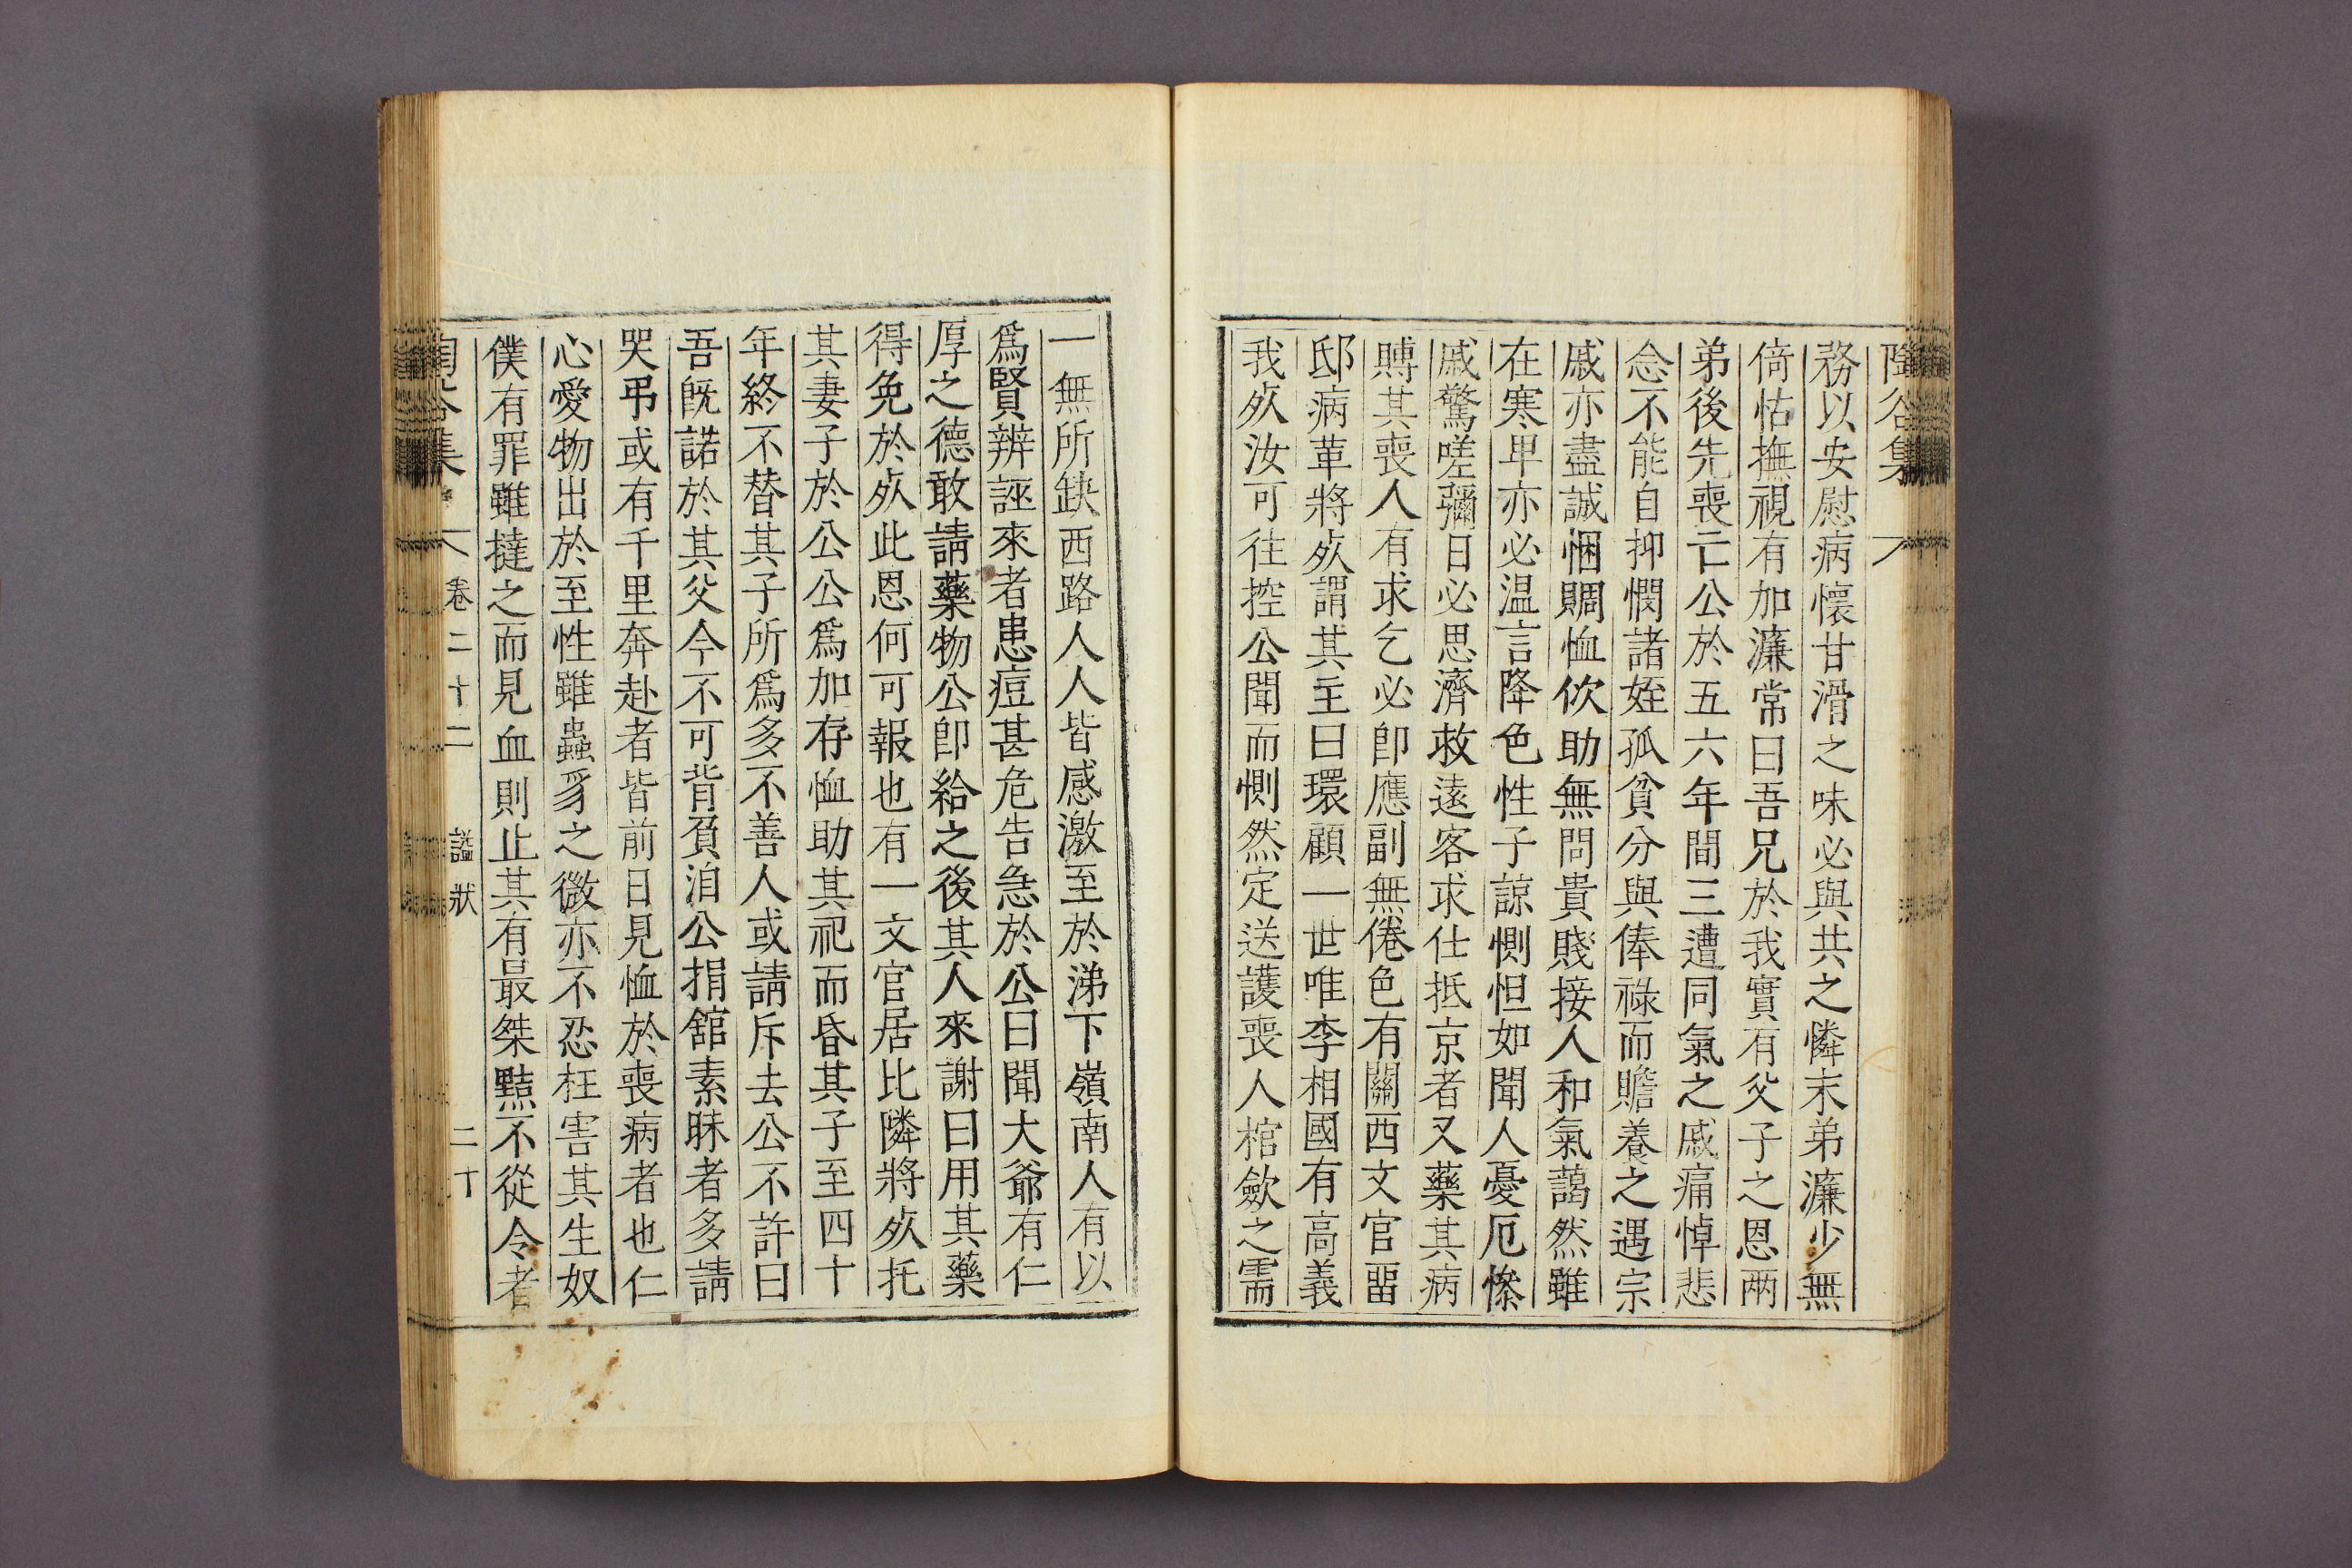 陶谷集
務以安慰病懷甘滑之味必與共之憐末弟濂少無
倚怙撫視有加濂常曰吾兄於我實有父子之恩兩
弟後先喪亡公於五六年間三遭同氣之戚痛悼悲
念不能自抑憫諸姪孤貧分與俸祿而贍養之遇宗
戚亦盡誠悃賙恤佽助無問貴賤接人和氣藹然雖
在寒卑亦必温言降色性子諒惻怛如聞人憂厄慘
戚驚嗟彌日必思濟救遠客求仕抵京者又藥其病
賻其喪人有求乞必卽應副無倦色有關西文官畱
邸病革將㱙謂其主曰環顧一世唯李相國有高義
我㱙汝可往控公聞而惻然定送護喪人棺歛之需
一無所缺西路人人皆感激至於涕下嶺南人有以
爲賢辨誣來者患痘甚危告急於公曰聞大爺有仁
厚之德敢請藥物公卽給之後其人來謝曰用其藥
得免於㱙此恩何可報也有一文官居比隣將㱙托
其妻子於公公爲加存恤助其祀而昏其子至四十
年終不替其子所爲多不善人或請斥去公不許曰
吾旣諾於其父今不可背負洎公捐舘素昧者多請
哭弔或有千里奔赴者皆前日見恤於喪病者也仁
心愛物出於至性雖蟲豸之微亦不忍枉害其生奴
僕有罪雖撻之而見血則止其有最桀黠不從令者
陶谷集
卷二十二
謚狀
二十